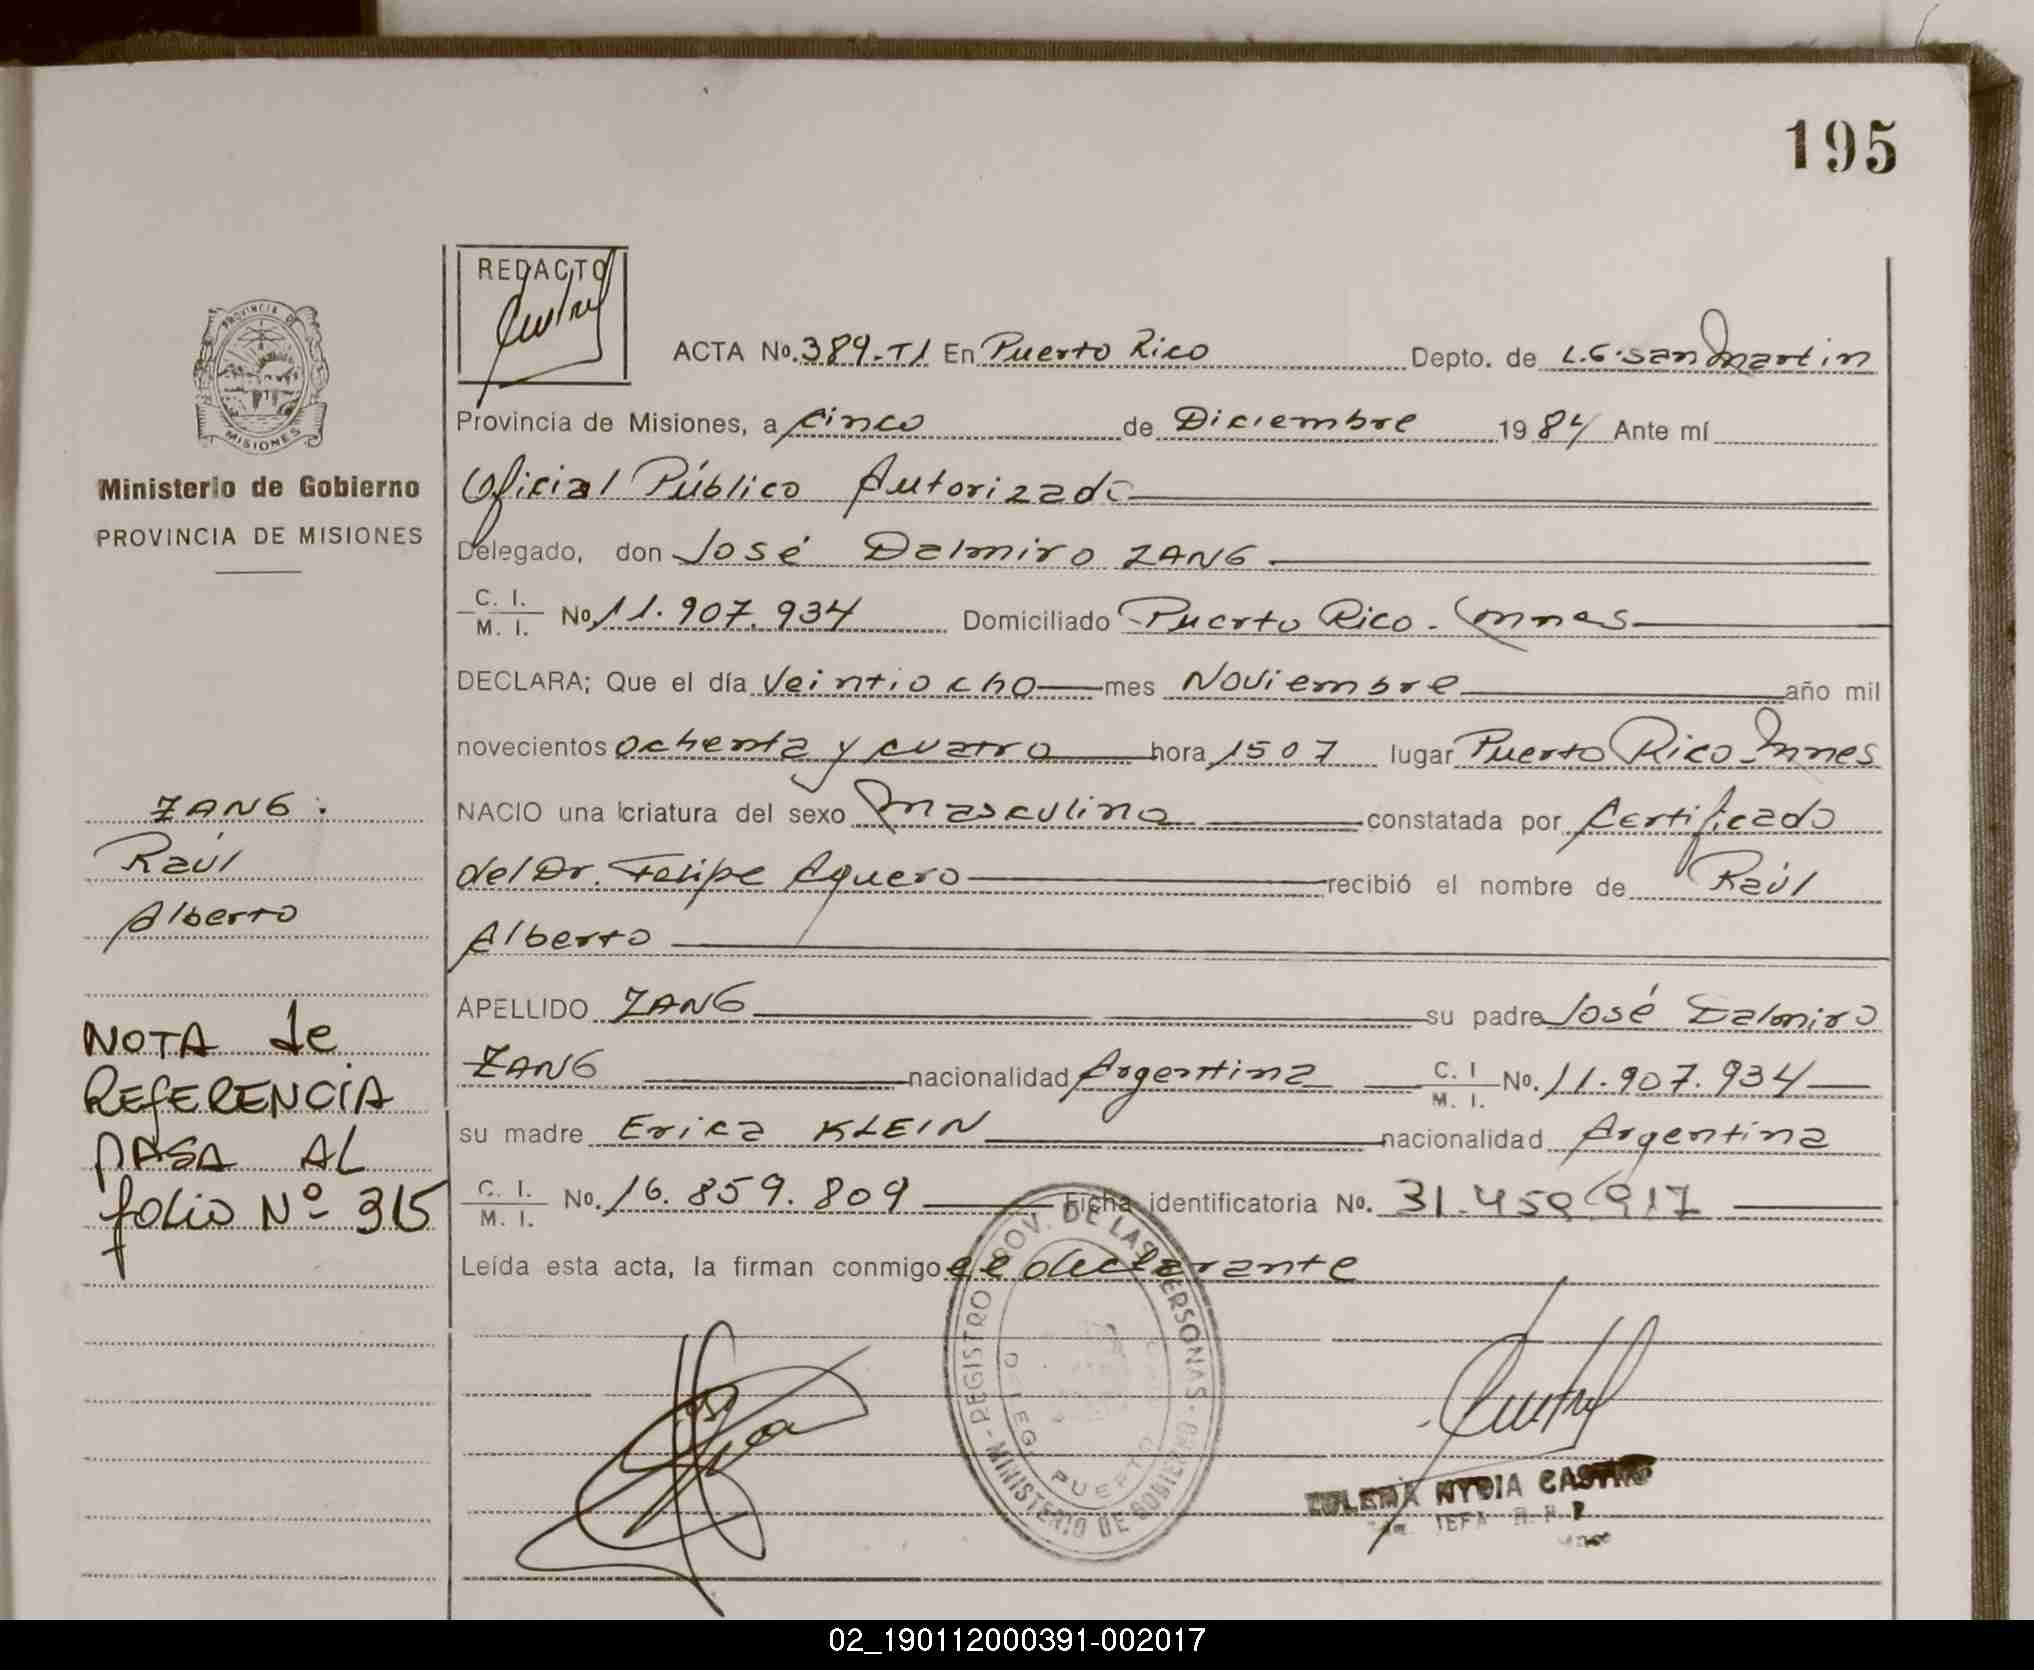 195
REDACTO
ACTA No. 389-T1 En Puerto Rico Depto. de L.G. San Martin
Provincia de Misiones, a cinco de Diciembre 1984 Ante mí
Oficial Público Autorizado
Delegado, don José Dalmiro ZANG
C. I.
M. I. No. 11.907.934 Domiciliado Puerto Rico - Mnes
DECLARA; Que el día Veintiocho mes Noviembre año mil
novecientos ochenta y cuatro hora 1507 lugar Puerto Rico - Mnes
NACIO una criatura del sexo Masculino constatada por Certificado
del Dr. Felipe Aquero recibió el nombre de Raúl
Alberto
APELLIDO ZANG su padre José Dalmiro
ZANG nacionalidad Argentina C. I
M. I. No. 11.907.934
su madre Erica KLEIN nacionalidad Argentina
C. I.
M. I. No. 16.859.809 Ficha identificatoria No. 31.459.917
Leída esta acta, la firman conmigo el declarante
PROVINCIA DE
MISIONES
Ministerio de Gobierno
PROVINCIA DE MISIONES
ZANG:
Raúl
Alberto
NOTA de
REFERENCIA
PASA AL
folio Nº 315
REGISTRO PROV. DE LAS PERSONAS - MINISTERIO DE GOBIERNO -
DELEG. PUERTO
ZULEMA NYDIA CASTRO
JEFA
02_190112000391-002017